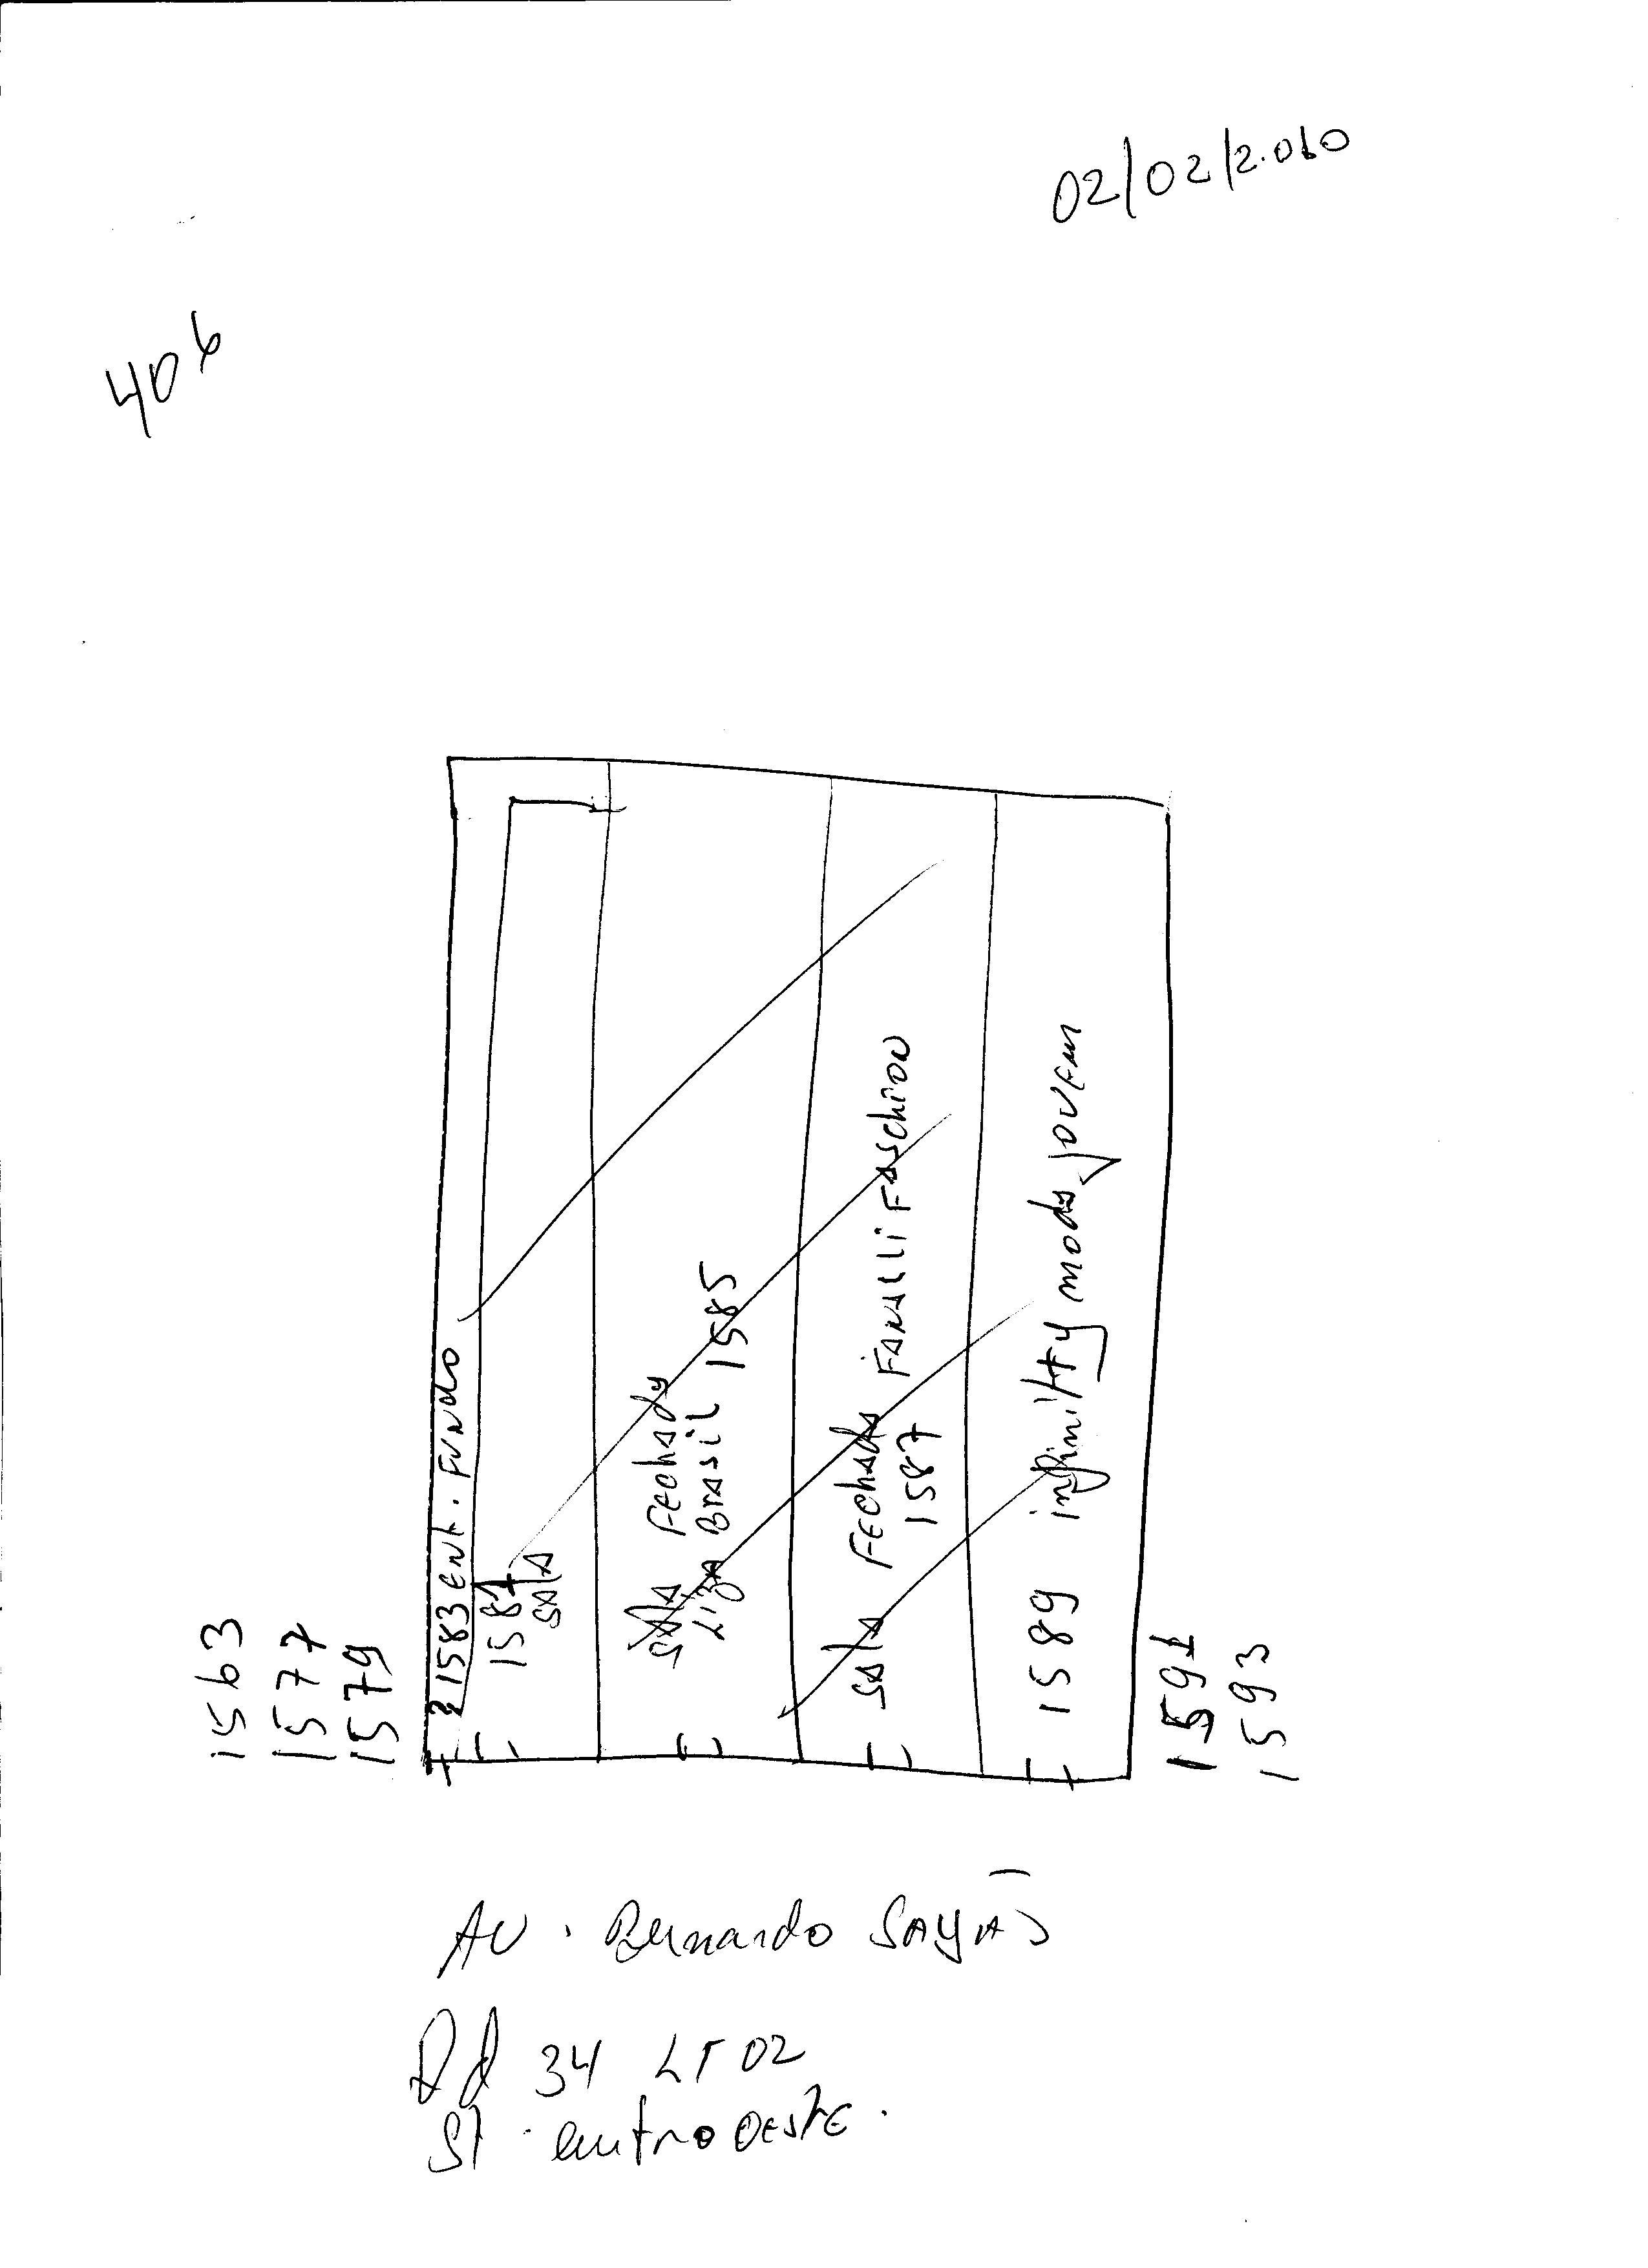 02/02/2.010
406
1563
1577
1579
1583 Ent. Fundo
1581
sala
sala Fechada
Liza Brasil 1585
sala Fechada Fanalli Faschion
1587
1589 infinitty moda jovem
1591
1593
AV. Bernardo SAYÃO
Qd 34 LT 02
St. centro OESTE.